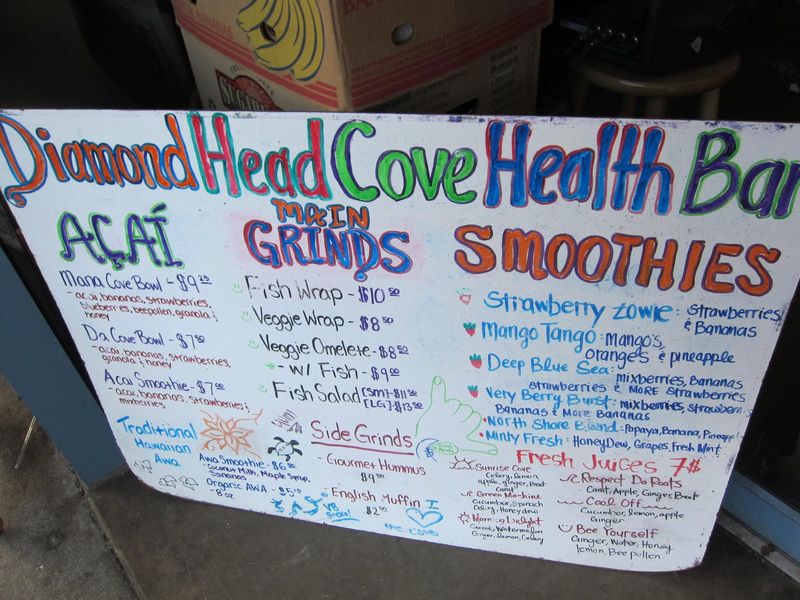 BANANAS
Diamond Head Cove Health Bar
AÇAÍ
Mana Cove Bowl - $9.25
- acai, bananas, strawberries,
blueberries, beepollen, granola &
honey
Da Cove Bowl - $7.50
- acai, bananas, strawberries,
granola & honey
Acai Smoothie - $7.00
- acai, bananas, strawberries &
mixberries
Traditional
Hawaiian
Awa
Awa Smoothie - $6.50
- Coconut Milk, Maple Syrup,
Bananas
Organic AWA - $5.15
- 8 oz
MAIN
GRINDS
Fish Wrap - $10.50
Veggie Wrap - $8.50
Veggie Omelete - $8.50
- w/ Fish - $9.00
Fish Salad [Sm] - $11.50
[LG] - $13.50
Side Grinds
- Gourmet Hummus
$9.50
- English Muffin
$2.50
I
the cove
SMOOTHIES
Strawberry Zowie: Strawberries
& Bananas
Mango Tango: Mango's,
oranges & pineapple
Deep Blue Sea:
mixberries, Bananas
Very Berry Burst: strawberries & MORE strawberries
mixberries, strawberri
Bananas & More Bananas
North Shore Blend: Papaya, Banana, Pineapp
Minty Fresh: HoneyDew, Grapes, Fresh Mint
Fresh Juices 7$
Sunrise Cove
Celery, lemon
apple, ginger, Beet
Carot
Green Machine
Cucumber, Spinach
Celery, Honeydew
Mom's Delight
Carrot, Watermelon
Ginger, lemon, Celery
Respect Da Roots
Carot, Apple, Ginger, Beet
Cool Off
Cucumber, lemon, apple
Ginger
Bee Yourself
Ginger, Water, Honey
lemon, Bee pollen